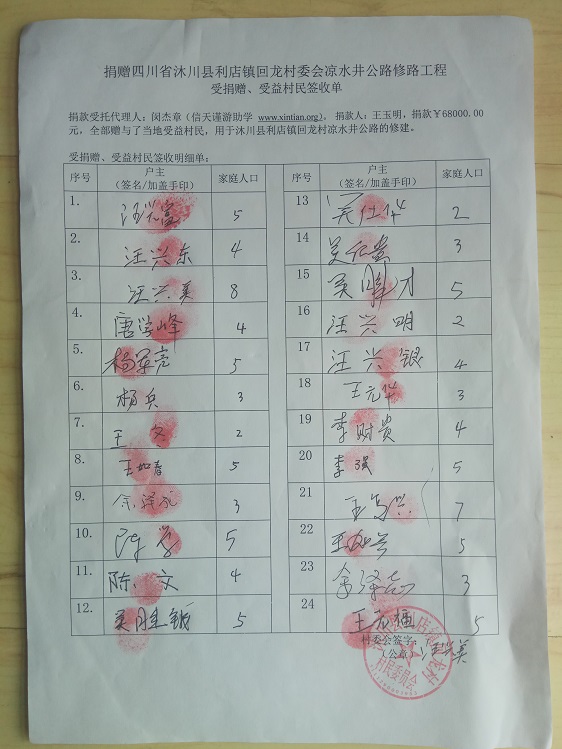 捐赠四川省沐川县利店镇回龙村委会凉水井公路修路工程
受捐赠、受益村民签收单
捐款受托代理人：闵杰章（信天谨游助学 www.xintian.org)。捐款人：王玉明，捐款￥68000.00
元，全部赠与了当地受益村民，用于沐川县利店镇回龙村凉水井公路的修建。
受捐赠、受益村民签收明细单：
序号 户主（签名/加盖手印） 家庭人口
1. 汪兴富 5
2. 汪兴东 4
3. 汪兴美 8
4. 唐学峰 4
5. 杨军亮 5
6. 杨兵 3
7. 王冬 2
8. 王如春 5
9. 3
10. 陈学 5
11. 陈文 4
12. 吴胜银 5
序号 户主（签名/加盖手印） 家庭人口
13 吴仕华 2
14 吴红贵 3
15 吴胜才 5
16 汪兴明 2
17 汪兴银 4
18 王元华 3
19 李财贵 4
20 李强 5
21 7
22 5
23 3
24 5
村委会签字：汪兴美
（公章）
村民委员会